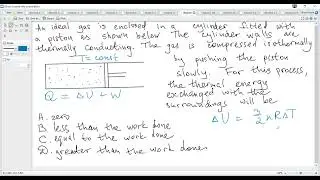 An ideal gas is enclosed in a cylinder fitted with
a piston as shown below. The cylinder walls are
thermally conducting. The gas is compressed isothermally
T = const
by pushing the piston
slowly. For this process,
the thermal energy
exchanged with the
surroundings will be
Q = ΔU + W
A. zero
B. less than the work done
C. equal to the work done
D. greater than the work done
ΔU = 3/2 nRΔT